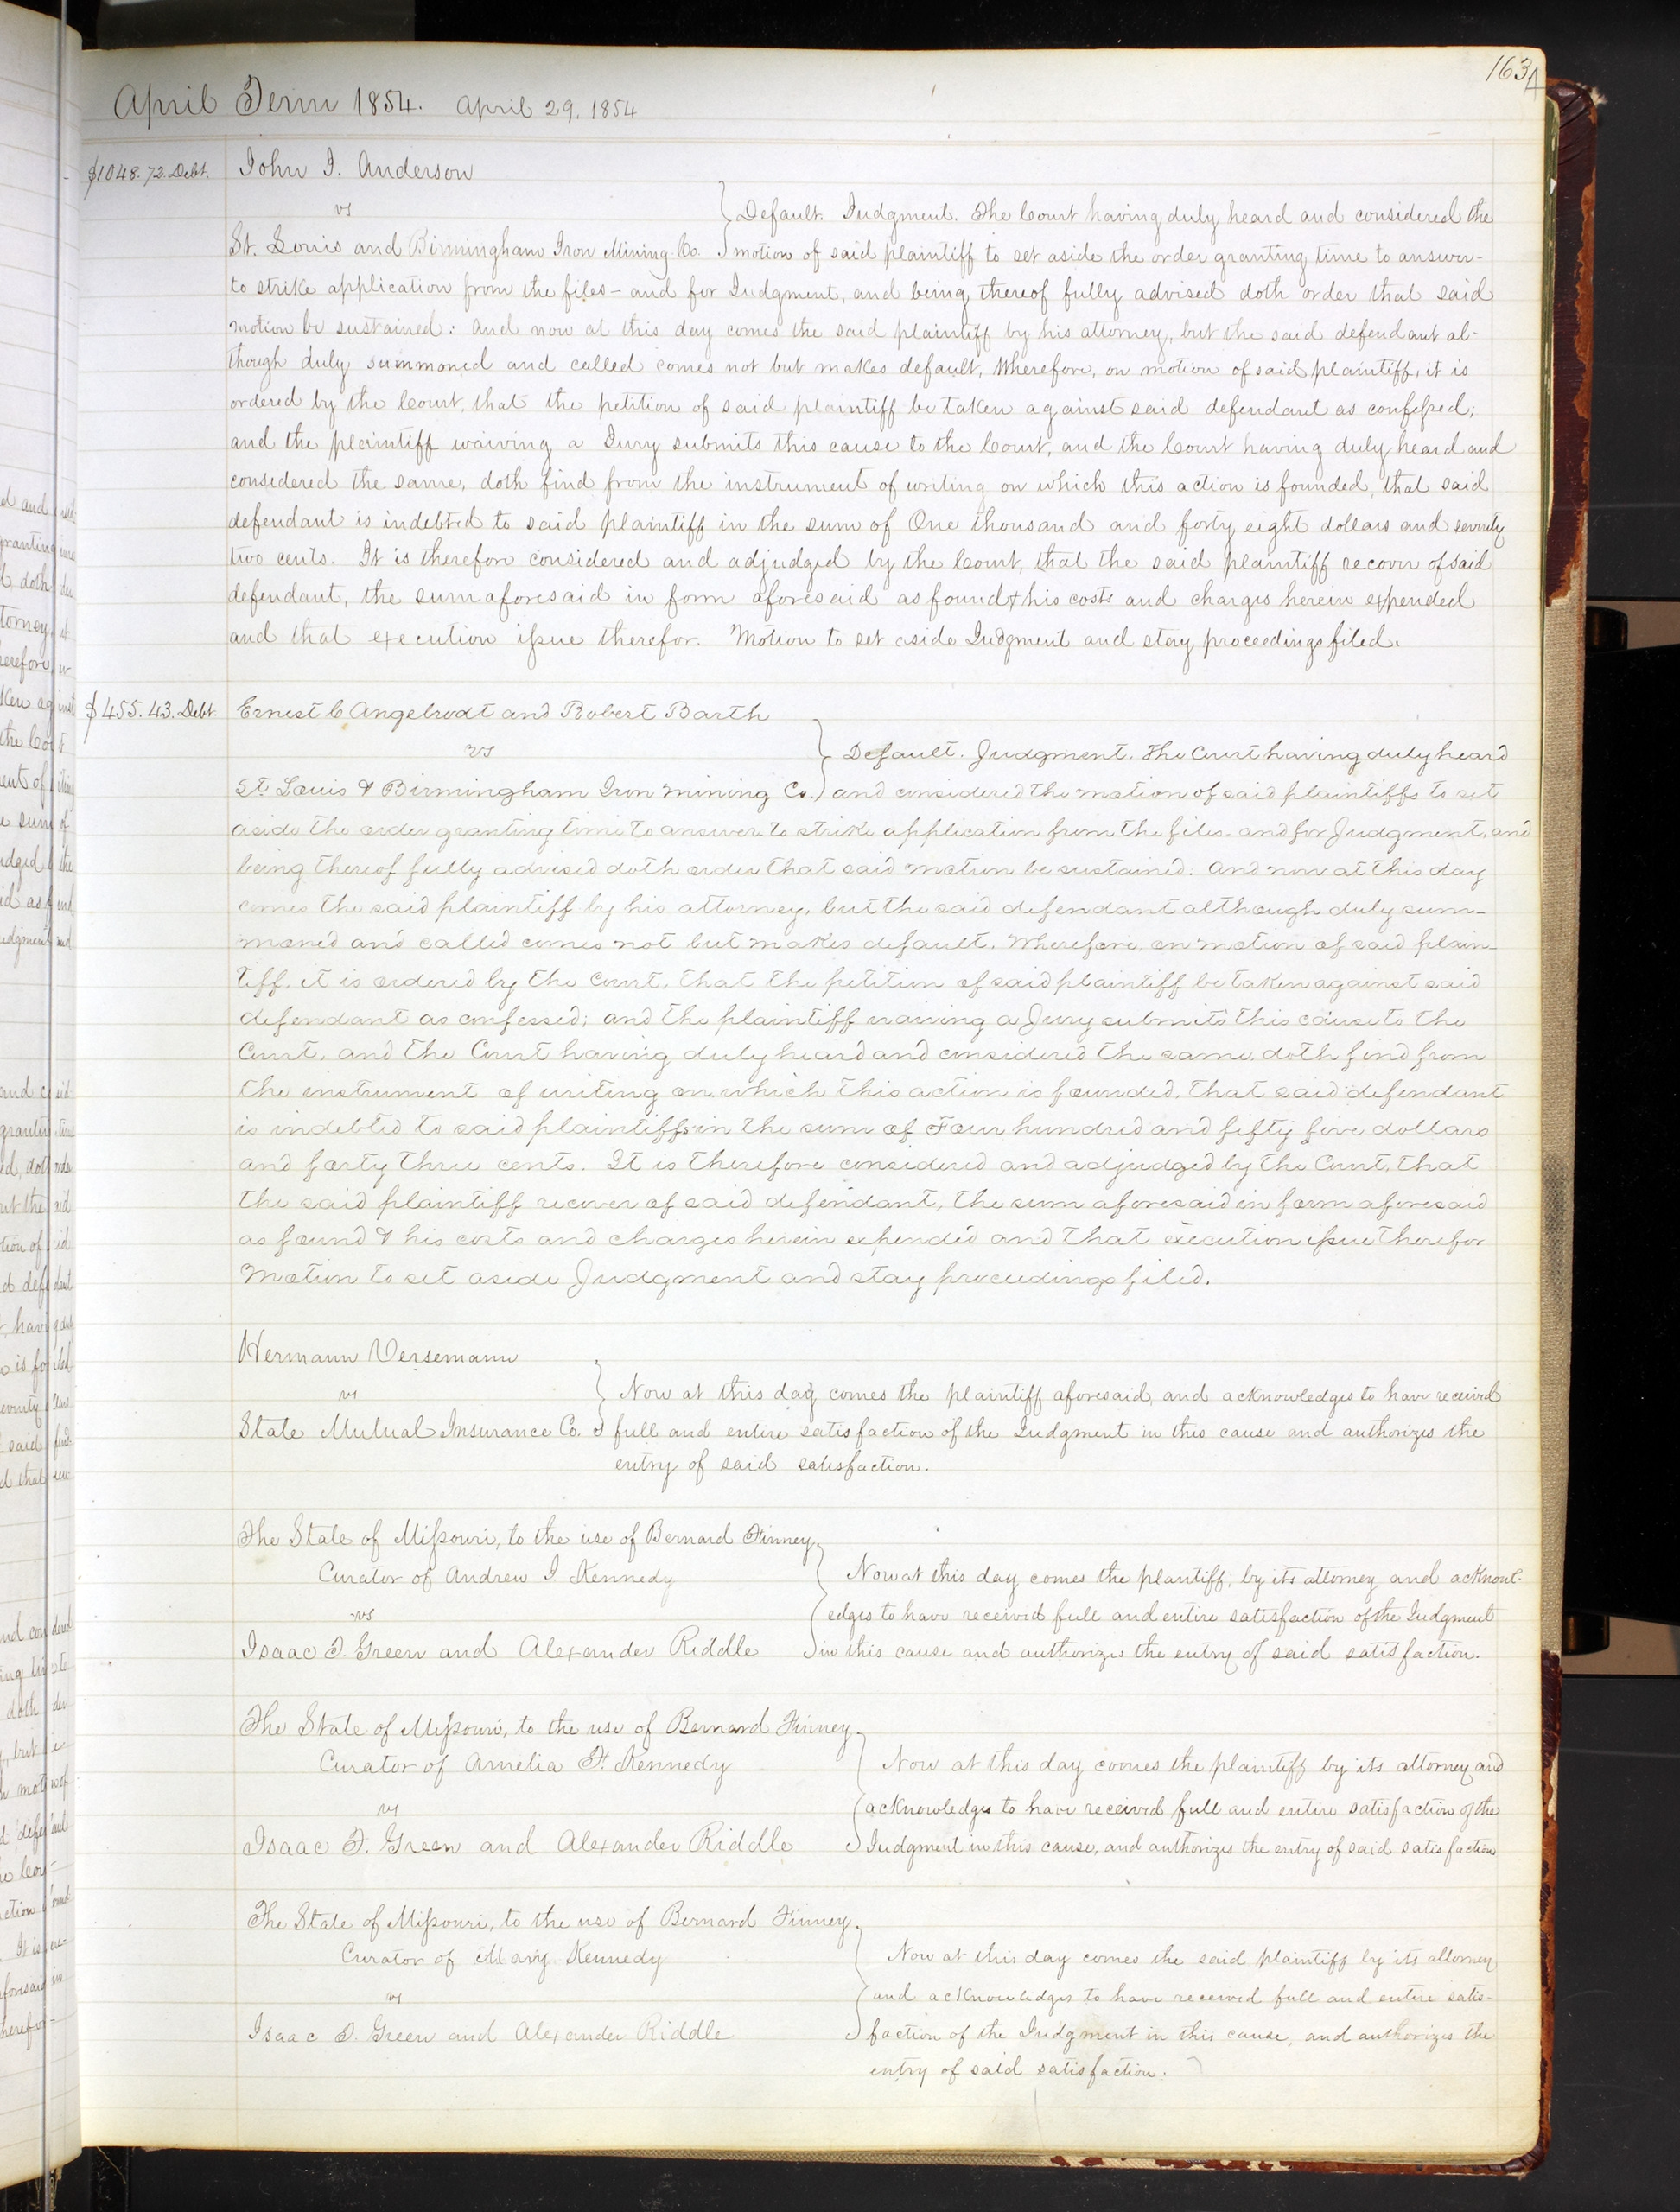 163A
April Term 1854. April 29. 1854
$1048.72. Debt. John J. Anderson
vs
Default. Judgment. The Court having duly heard and considered the
St. Louis and Birmingham Iron Mining Co. motion of said plaintiff to set aside the order granting time to answer-
to strike application from the files - and for Judgment, and being thereof fully advised doth order that said
motion be sustained: And now at this day comes the said plaintiff by his attorney, but the said defendant al-
though duly summoned and called comes not but makes default, Wherefore, on motion of said plaintiff, it is
ordered by the Court, that the petition of said plaintiff be taken against said defendant as confessed;
and the plaintiff waiving a Jury submits this cause to the Court, and the Court having duly heard and
considered the same, doth find from the instrument of writing on which this action is founded, that said
defendant is indebted to said plaintiff in the sum of One thousand and forty eight dollars and seventy
two cents. It is therefore considered and adjudged by the Court, that the said plaintiff recover of said
defendant, the sum aforesaid in form aforesaid as found & his costs and charges herein expended
and that execution issue therefor. Motion to set aside Judgment and stay proceedings filed.
$455.43. Debt. Ernest C Angelrodt and Robert Barth
vs
Default. Judgment. The Court having duly heard
St. Louis & Birmingham Iron Mining Co. and considered the motion of said plaintiffs to set
aside the order granting time to answer to strike application from the files. and for Judgment, and
being thereof fully advised doth order that said motion be sustained. And now at this day
comes the said plaintiff by his attorney, but the said defendant although duly sum-
moned and called comes not but makes default. Wherefore on motion of said plain-
tiff, it is ordered by the Court, that the petition of said plaintiff be taken against said
defendant as confessed; and the plaintiff waiving a Jury submits this cause to the
Court, and the Court having duly heard and considered the same doth find from
the instrument of writing on which this action is founded, that said defendant
is indebted to said plaintiffs in the sum of Four hundred and fifty five dollars
and forty three cents. It is therefore considered and adjudged by the Court, that
the said plaintiff recover of said defendant, the sum aforesaid in form aforesaid
as found & his costs and charges herein expended and that execution issue therefor
Motion to set aside Judgment and stay proceedings filed.
Hermann Versemann
vs
Now at this day comes the plaintiff aforesaid, and acknowledges to have received
State Mutual Insurance Co. full and entire satisfaction of the Judgment in this cause and authorizes the
entry of said satisfaction.
The State of Missouri, to the use of Bernard Finney
Curator of Andrew J. Kennedy Now at this day comes the plantiff, by its attorney and acknowl-
vs edges to have received full and entire satisfaction of the Judgment
Isaac T. Green and Alexander Riddle in this cause and authorizes the entry of said satisfaction.
The State of Missouri, to the use of Bernard Finney
Curator of Amelia F. Kennedy Now at this day comes the plaintiff by its attorney and
vs acknowledges to have received full and entire satisfaction of the
Isaac T. Green and Alexander Riddle Judgment in this cause, and authorizes the entry of said satisfaction
The State of Missouri, to the use of Bernard Finney
Curator of Mary Kennedy Now at this day comes the said plaintiff by its attorney
vs and acknowledges to have received full and entire satis-
Isaac T. Green and Alexander Riddle faction of the Judgment in this cause, and authorizes the
entry of said satisfaction.